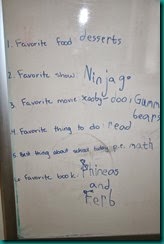 1. Favorite food desserts
2. Favorite show Ninjago
3. Favorite movie
Gummy
bears
4. Favorite thing to do read
5. Best thing about school today p.e. math
6. Favorite book. Phineas
and
Ferb